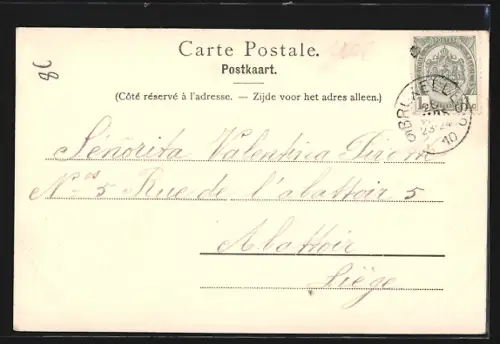 Carte Postale.
Postkaart.
(Côté réservé à l'adresse. — Zijde voor het adres alleen.)
Señorita Valentina
Nos 5 Rue de l'abattoir 5
Abattoir
Liège